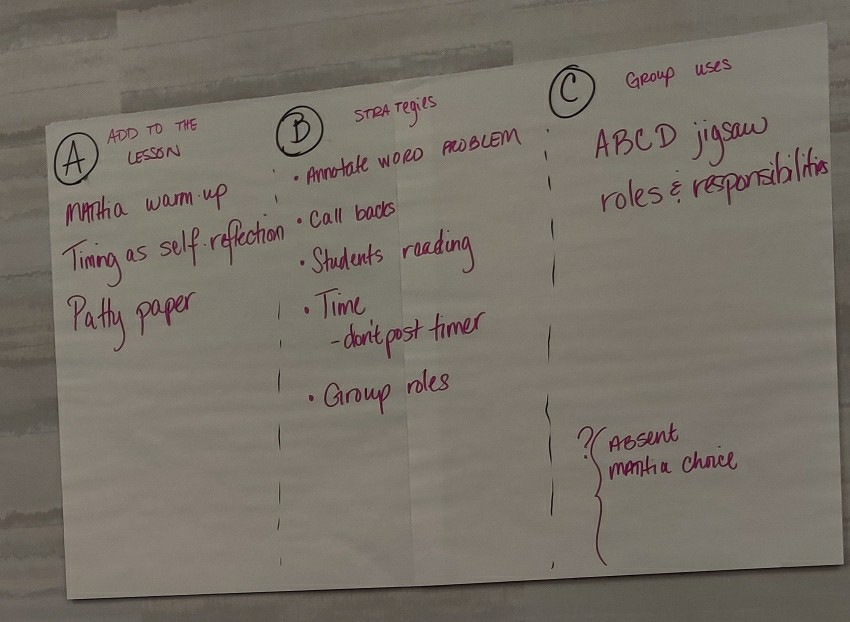 A
ADD TO THE
LESSON
MAThia warm-up
Timing as self-reflection
Patty paper
B
STRATegies
• Annotate WORD PROBLEM
• Call backs
• Students reading
• Time
- don't post timer
• Group roles
C
Group uses
ABCD jigsaw
roles & responsibilities
? ABsent
MAThia choice